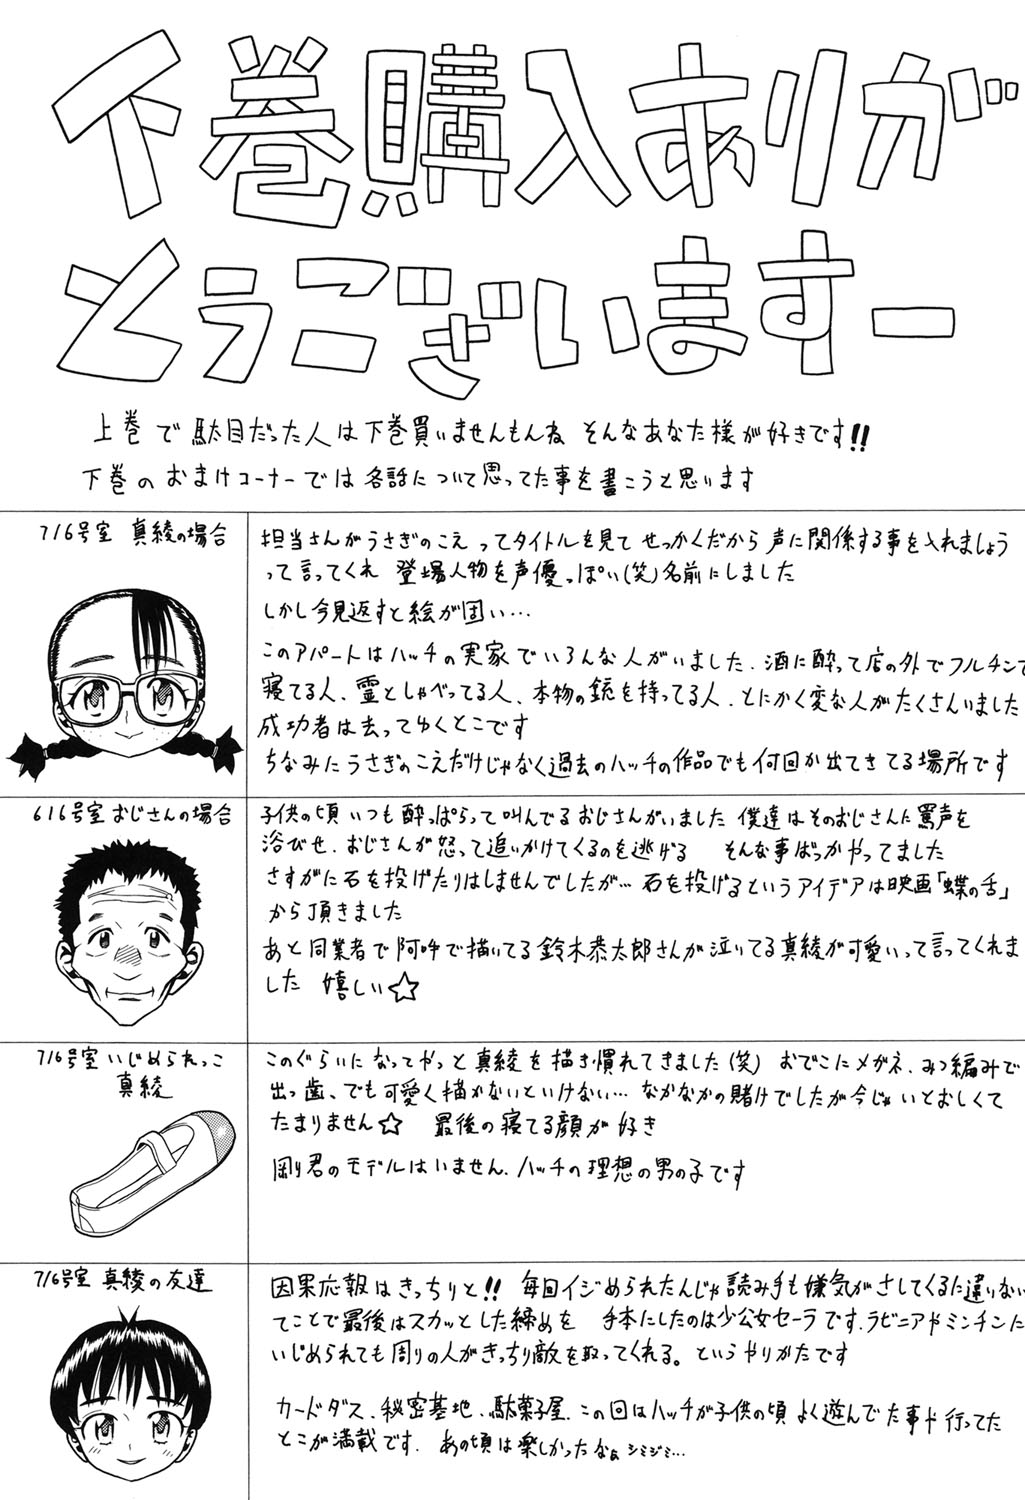 下巻購入ありが
とうございますー
上巻で駄目だった人は下巻買いませんもんね そんなあなた様が好きです!!
下巻のおまけコーナーでは各話について思ってた事を書こうと思います
716号室 真綾の場合
担当さんがうさぎのこえ ってタイトルを見て せっかくだから声に関係する事を入れましょう
って言ってくれ 登場人物を声優っぽい(笑)名前にしました
しかし今見返すと絵が固い…
このアパートはハッチの実家でいろんな人がいました.酒に酔って店の外でフルチンで
寝てる人、霊としゃべってる人、本物の銃を持ってる人、とにかく変な人がたくさんいました
成功者は去ってゆくとこです
ちなみにうさぎのこえだけじゃなく過去のハッチの作品でも何回か出てきてる場所です
616号室おじさんの場合
子供の頃いつも酔っぱらって叫んでるおじさんがいました 僕達はそのおじさんに罵声を
浴びせ、おじさんが怒って追いかけてくるのを逃げる そんな事ばっかやってました
さすがに石を投げたりはしませんでしたが…石を投げるというアイデアは映画「蝶の舌」
から頂きました
あと同業者で阿吽で描いてる鈴木恭太郎さんが泣いてる真綾が可愛いって言ってくれま
した 嬉しい☆
716号室いじめられっこ
真綾
このぐらいになってやっと真綾を描き慣れてきました(笑) おでこにメガネ、みつ編みで
出っ歯、でも可愛く描かないといけない…なかなかの賭けでしたが今じゃいとおしくて
たまりません☆ 最後の寝てる顔が好き
剛り君のモデルはいません、ハッチの理想の男の子です
716号室 真綾の友達
因果応報はきっちりと!! 毎回イジめられたんじゃ読み手も嫌気がさしてくるに違いない
てことで最後はスカッとした締めを 手本にしたのは少公女セーラです.ラビニアやミンチンに
いじめられても周りの人がきっちり敵を取ってくれる。というやりかたです
カードダス、秘密基地、駄菓子屋、この回はハッチが子供の頃よく遊んでた事や行ってた
とこが満載です. あの頃は楽しかったなぁ シミジミ…